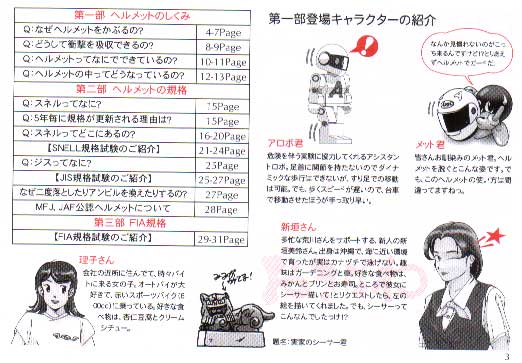 第一部 ヘルメットのしくみ
Q:なぜヘルメットをかぶるの? 4-7Page
Q:どうして衝撃を吸収できるの? 8-9Page
Q:ヘルメットってなにでできているの? 10-11Page
Q:ヘルメットの中ってどうなっているの? 12-13Page
第二部 ヘルメットの規格
Q:スネルってなに? 15Page
Q:5年毎に規格が更新される理由は? 15Page
Q:スネルってどこにあるの? 16-20Page
【SNELL規格試験のご紹介】 21-24Page
Q:ジスってなに? 25Page
【JIS規格試験のご紹介】 25-27Page
なぜ二度落としたリアンビルを換えたりするの? 27Page
MFJ、JAF公認ヘルメットについて 28Page
第三部 FIA規格
【FIA規格試験のご紹介】 29-31Page
理子さん
会社の近所に住んでて、時々バイ
トに来る女の子。オートバイが大
好きで、赤いスポーツバイク(6
00cc)に乗っている。好きな食
べ物は、杏仁豆腐とクリーム
シチュー。
第一部登場キャラクターの紹介
なんか見慣れないのがこっ
ち来るんですけど!?とりあえ
ずヘルメットでガードだ。
アロボ君
危険を伴う実験に協力してくれるアシスタン
トロボ。足首に関節を持たないのでダイナ
ミックな歩行はできないが、すり足での移動
は可能。でも、歩くスピードが遅いので、台車
で移動させたほうが手っ取り早い。
メット君
皆さんお馴染みのメット君。ヘルメ
ットを脱ぐとこんな姿です。で
も、このヘルメットの使い方は間
違ってますねっ。
新垣さん
多忙な荒川さんをサポートする、新人の新
垣美鈴さん。出身は沖縄で、海に近い環境
で育ったが実はカナヅチで泳げない。趣
味はガーデニングと車。好きな食べ物は、
みかんとプリンとお寿司。ところで彼女に
シーサー描いて!とリクエストしたら、左の
絵を描いてくれました。でも、シーサーって
こんなんでしたっけ!?
題名:実家のシーサー君
3